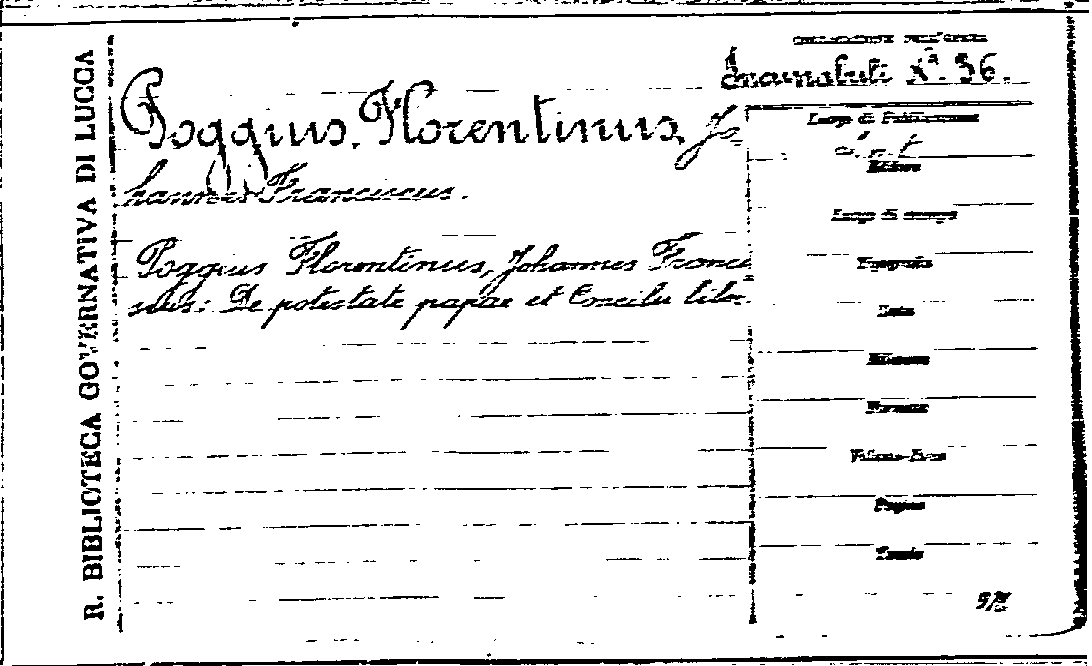 R. BIBLIOTECA GOVERNATIVA DI LUCCA
Incunabuli N.º 96.
Poggius Florentinus, Jo-
hannes Franciscus.
Poggius Florentinus, Johannes Franci
scus: De potestate papae et Concilii liber.
Luogo di Pubblicazione
Editore
Luogo di stampa
Tipografia
Data
Edizione
Formato
Volume-Parte
Pagine
Tavole